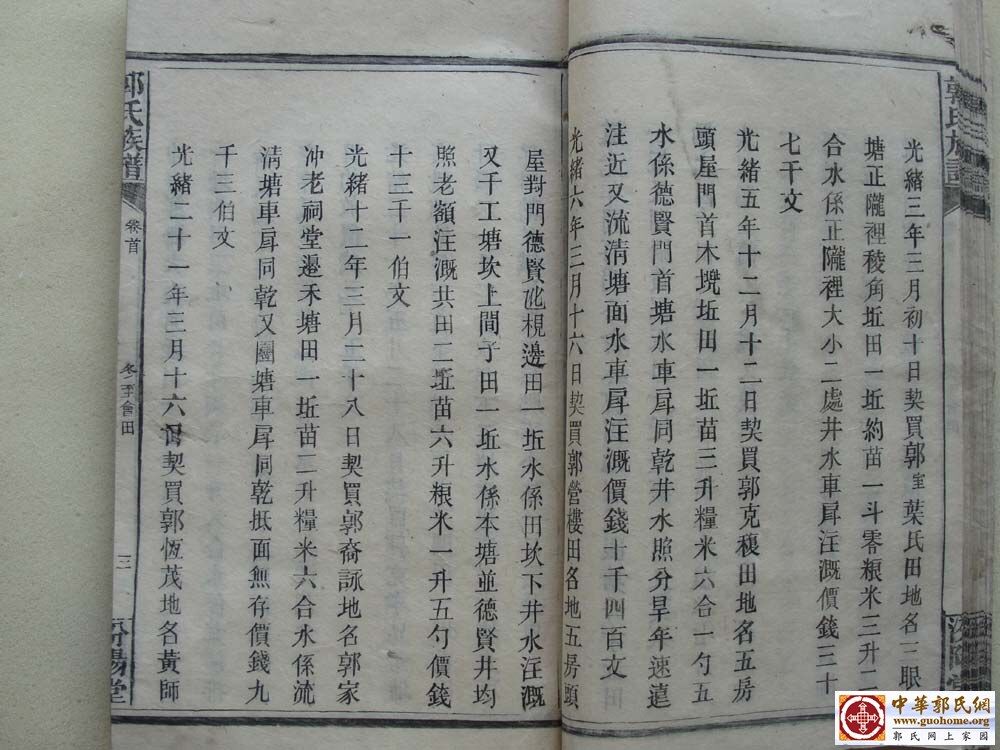 郭氏族譜
光緒三年三月初十日契買郭室葉氏田地名三眼
塘正隴裡稜角坵田一坵約苗一斗零粮米三升二
合水係正隴裡大小二處井水車戽注溉價錢三十
七千文
光緒五年十二月十二日契買郭克穫田地名五房
頭屋門首木墈坵田一坵苗三升糧米六合一勺五
水係德賢門首塘水車戽同乾井水照分旱年速遠
注近又流清塘面水車戽注溉價錢十千四百文
光緒六年三月十六日契買郭營樓田名地五房頭
屋對門德賢兆梘邊田一坵水係田坎下井水注溉
又千工塘坎上間子田一坵水係本塘並德賢井均
照老額注溉共田二坵苗六升粮米一升五勺價錢
十三千一伯文
光緒十二年三月二十八日契買郭裔詠地名郭家
冲老祠堂邊禾塘田一坵苗二升糧米六合水係流
清塘車戽同乾又團塘車戽同乾抵面無存價錢九
千三伯文
光緒二十一年三月十六日契買郭恆茂地名黃師
郭氏族譜
卷首
冬至會田
三
汾陽堂
中華郭氏網
www.guohome.org
郭氏网上家园